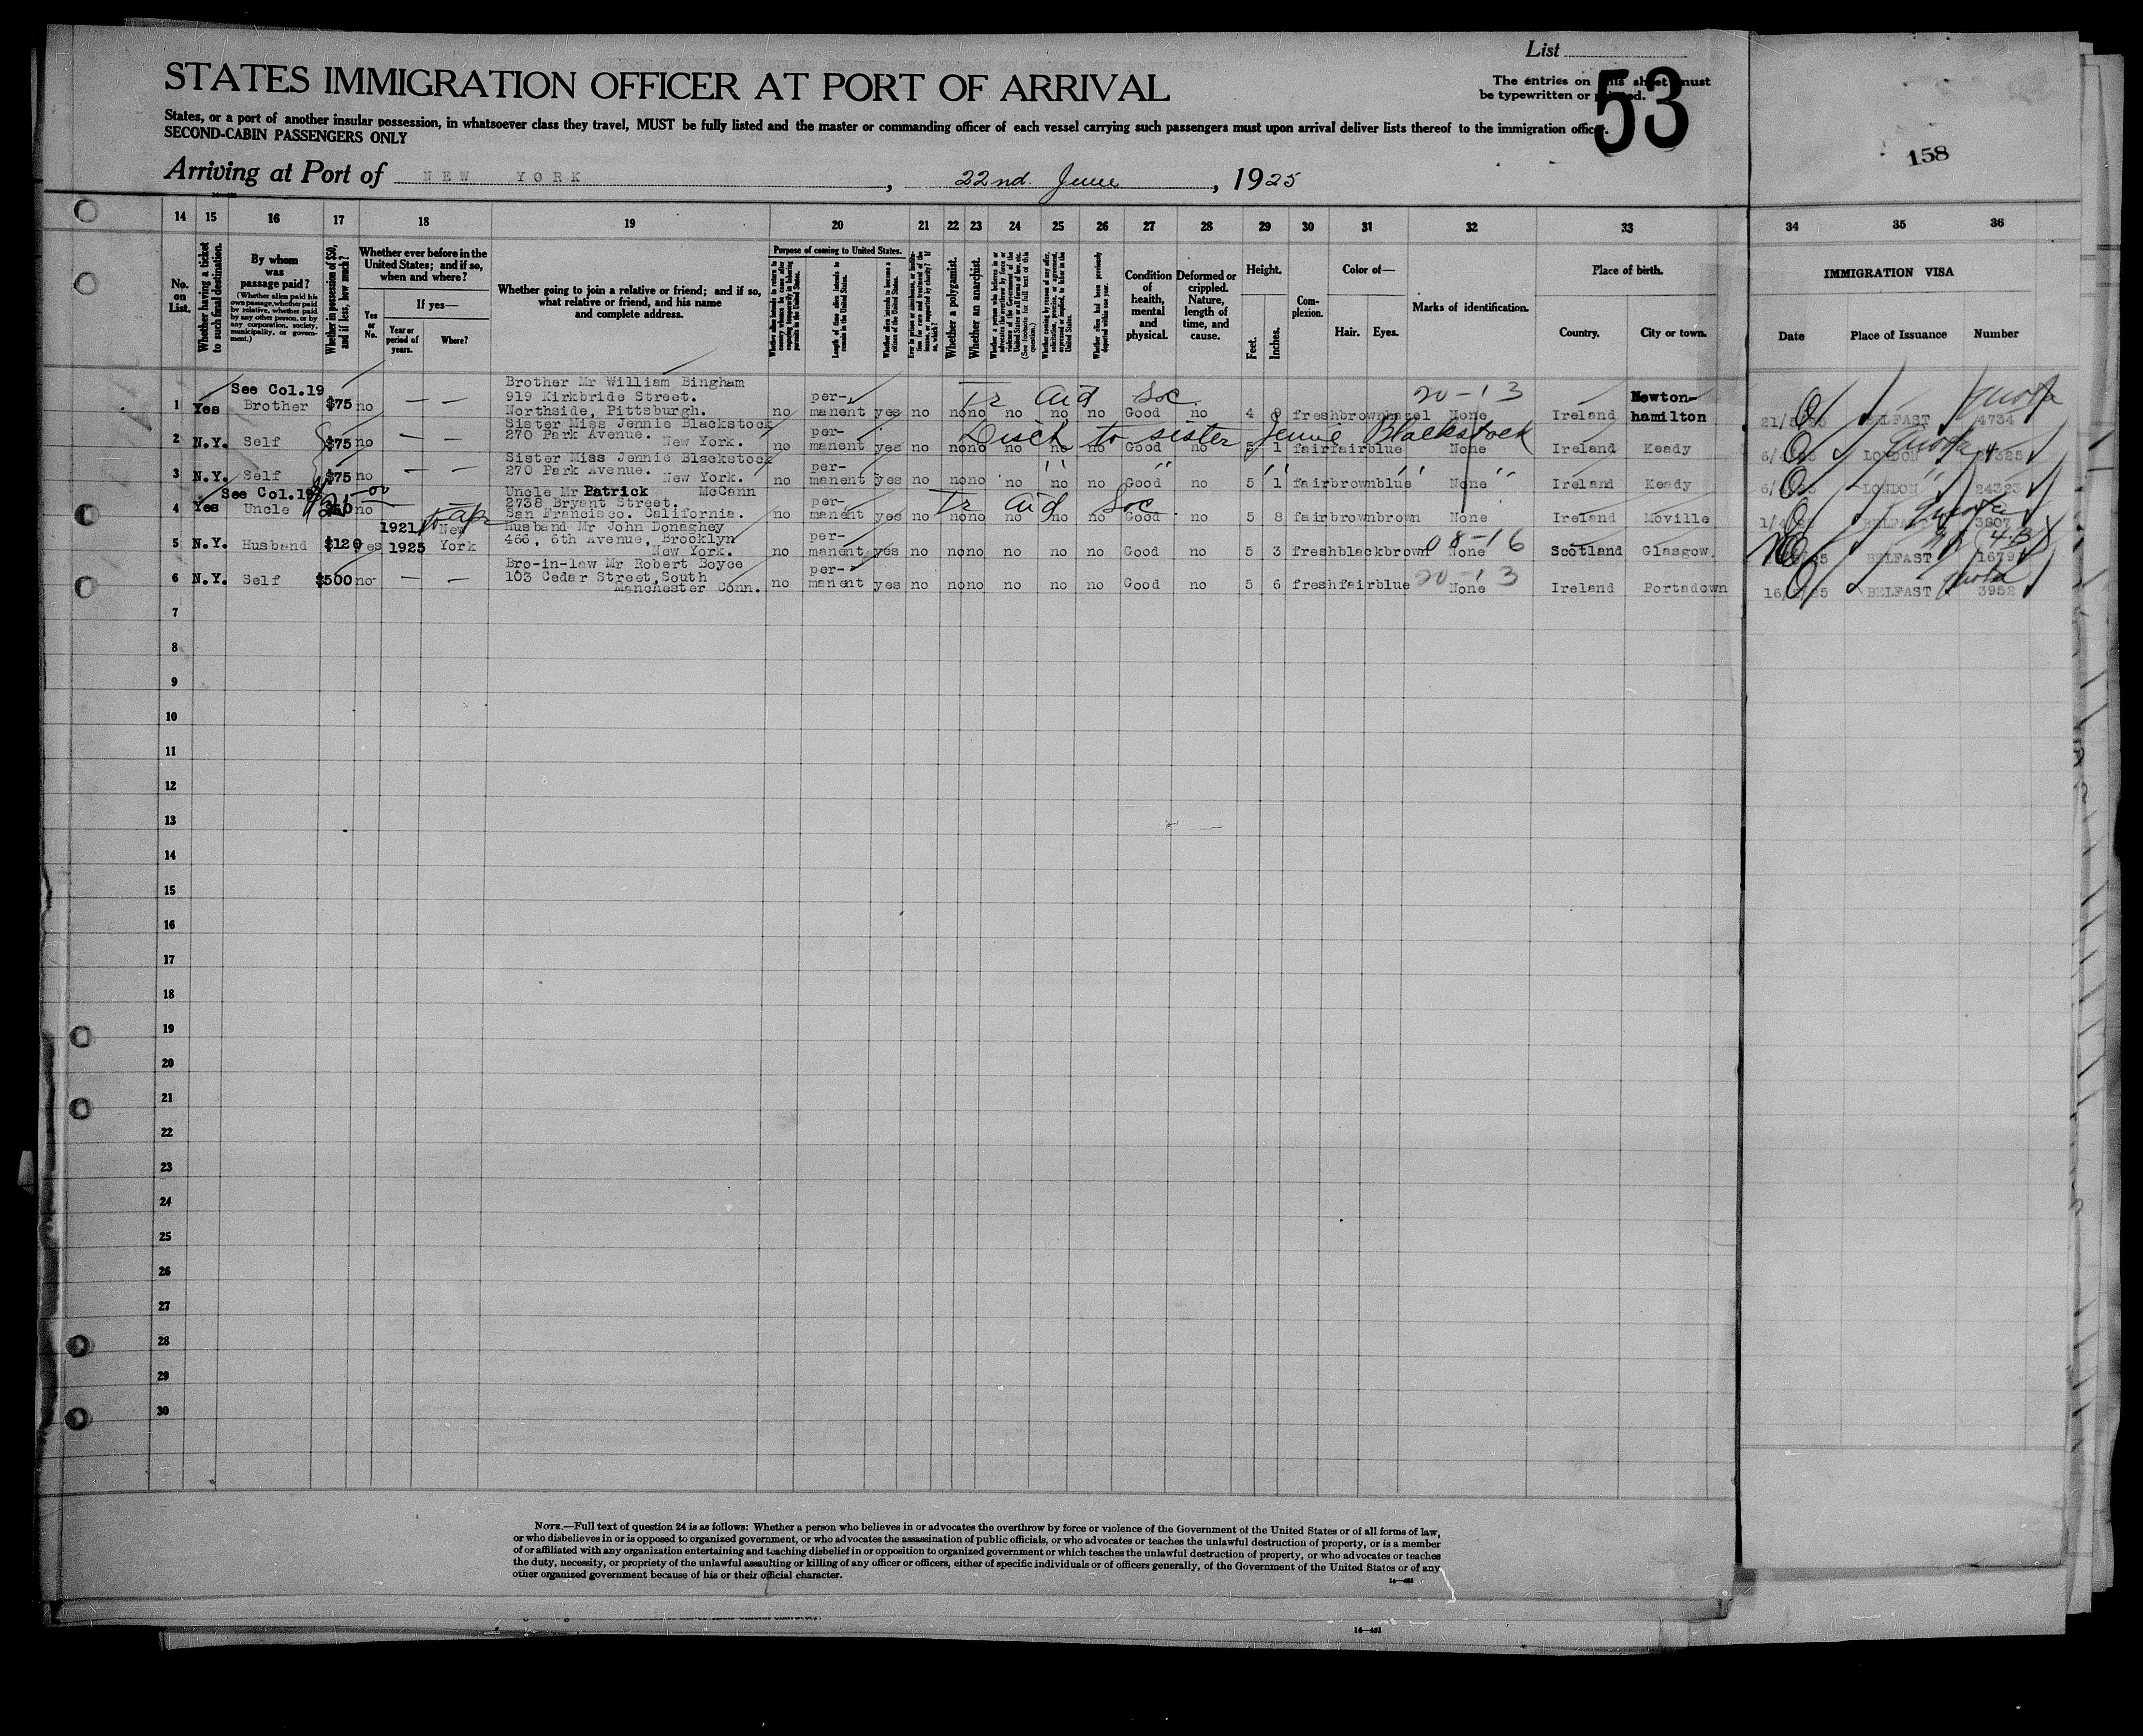 List
STATES IMMIGRATION OFFICER AT PORT OF ARRIVAL
The entries on this sheet must
be typewritten or printed.
53
States, or a port of another insular possession, in whatsoever class they travel, MUST be fully listed and the master or commanding officer of each vessel carrying such passengers must upon arrival deliver lists thereof to the immigration officer.
SECOND-CABIN PASSENGERS ONLY
158
Arriving at Port of NEW YORK, 22nd. June, 1925
14 15 16 17 18 19 20 21 22 23 24 25 26 27 28 29 30 31 32 33 34 35 36
No. on List.
Whether having a ticket to such final destination.
By whom was passage paid?
(Whether alien paid his own passage, whether paid by relative, whether paid by any other person, or by any corporation, society, municipality, or government.)
Whether in possession of $50, and if less, how much?
Whether ever before in the United States; and if so, when and where?
Yes or No.
If yes—
Year or period of years.
Where?
Whether going to join a relative or friend; and if so, what relative or friend, and his name and complete address.
Purpose of coming to United States.
Length of time alien intends to remain in the United States.
Whether alien intends to become a citizen of the United States.
Whether a polygamist.
Whether an anarchist.
Condition of health, mental and physical.
Deformed or crippled. Nature, length of time, and cause.
Height.
Feet. Inches.
Complexion.
Color of—
Hair. Eyes.
Marks of identification.
Place of birth.
Country. City or town.
IMMIGRATION VISA
Date Place of Issuance Number
See Col.19
Brother Mr William Bingham
919 Kirkbride Street.
Northside, Pittsburgh.
1 Yes Brother $75 no — — no permanent yes no no no no no no Good no 4 9 fresh brown hazel None Ireland Newtonhamilton BELFAST 4734
Tr Aid Soc.
20-13
quota
Sister Miss Jennie Blackstock
270 Park Avenue. New York.
2 N.Y. Self $75 no — — no permanent yes no no no no no no Good no 5 1 fair fair blue None Ireland Keady LONDON
Disch to sister Jennie Blackstock
quota
Sister Miss Jennie Blackstock
270 Park Avenue. New York.
3 N.Y. Self $75 no — — no permanent yes no no no no no no Good no 5 1 fair brown blue None Ireland Keady LONDON 24323
" " " " "
See Col.19
Uncle Mr Patrick McCann
2738 Bryant Street.
San Francisco. California.
4 Yes Uncle no no permanent yes no no no no no no Good no 5 8 fair brown brown None Ireland Moville BELFAST 3807
Tr Aid Soc.
quota
Husband Mr John Donaghey
466, 6th Avenue, Brooklyn
New York.
5 N.Y. Husband $120 yes 1921 1925 New York no permanent yes no no no no no no Good no 5 3 fresh black brown None Scotland Glasgow. BELFAST 1679
08-16
4-B
Bro-in-law Mr Robert Boyce
103 Cedar Street, South
Manchester Conn.
6 N.Y. Self $500 no — — no permanent yes no no no no no no Good no 5 6 fresh fair blue None Ireland Portadown BELFAST 3952
20-13
quota
7
8
9
10
11
12
13
14
15
16
17
18
19
20
21
22
23
24
25
26
27
28
29
30
NOTE.—Full text of question 24 is as follows: Whether a person who believes in or advocates the overthrow by force or violence of the Government of the United States or of all forms of law,
or who disbelieves in or is opposed to organized government, or who advocates the assassination of public officials, or who advocates or teaches the unlawful destruction of property, or is a member
of or affiliated with any organization entertaining and teaching disbelief in or opposition to organized government or which teaches the unlawful destruction of property, or who advocates or teaches
the duty, necessity, or propriety of the unlawful assaulting or killing of any officer or officers, either of specific individuals or of officers generally, of the Government of the United States or of any
other organized government because of his or their official character.
14—481
14—481